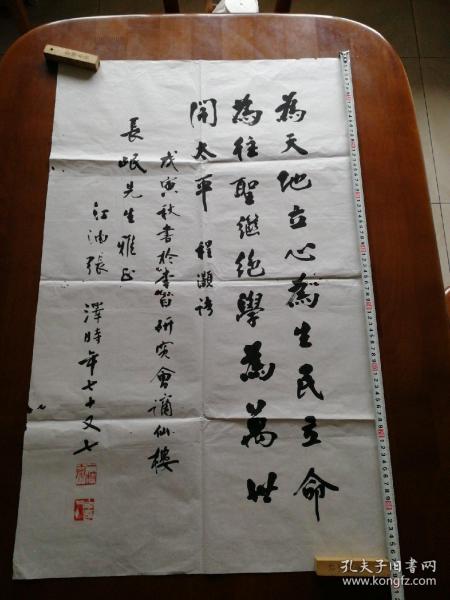 為天地立心為生民立命
為往聖繼絕學為萬世
開太平 程灝語
戊寅秋書於李白研究會謫仙樓
長岷先生雅正
江油張澤時年七十又七
孔夫子旧书网
www.kongfz.com